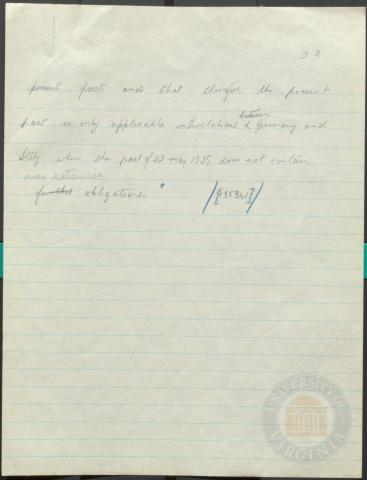 92
present pact and that therefore the present
between
pact is only applicable in relations Germany and
Italy when the pact of 22 may 1939 does not contain
more extensive
further obligations."
UNIVERSITY OF VIRGINIA